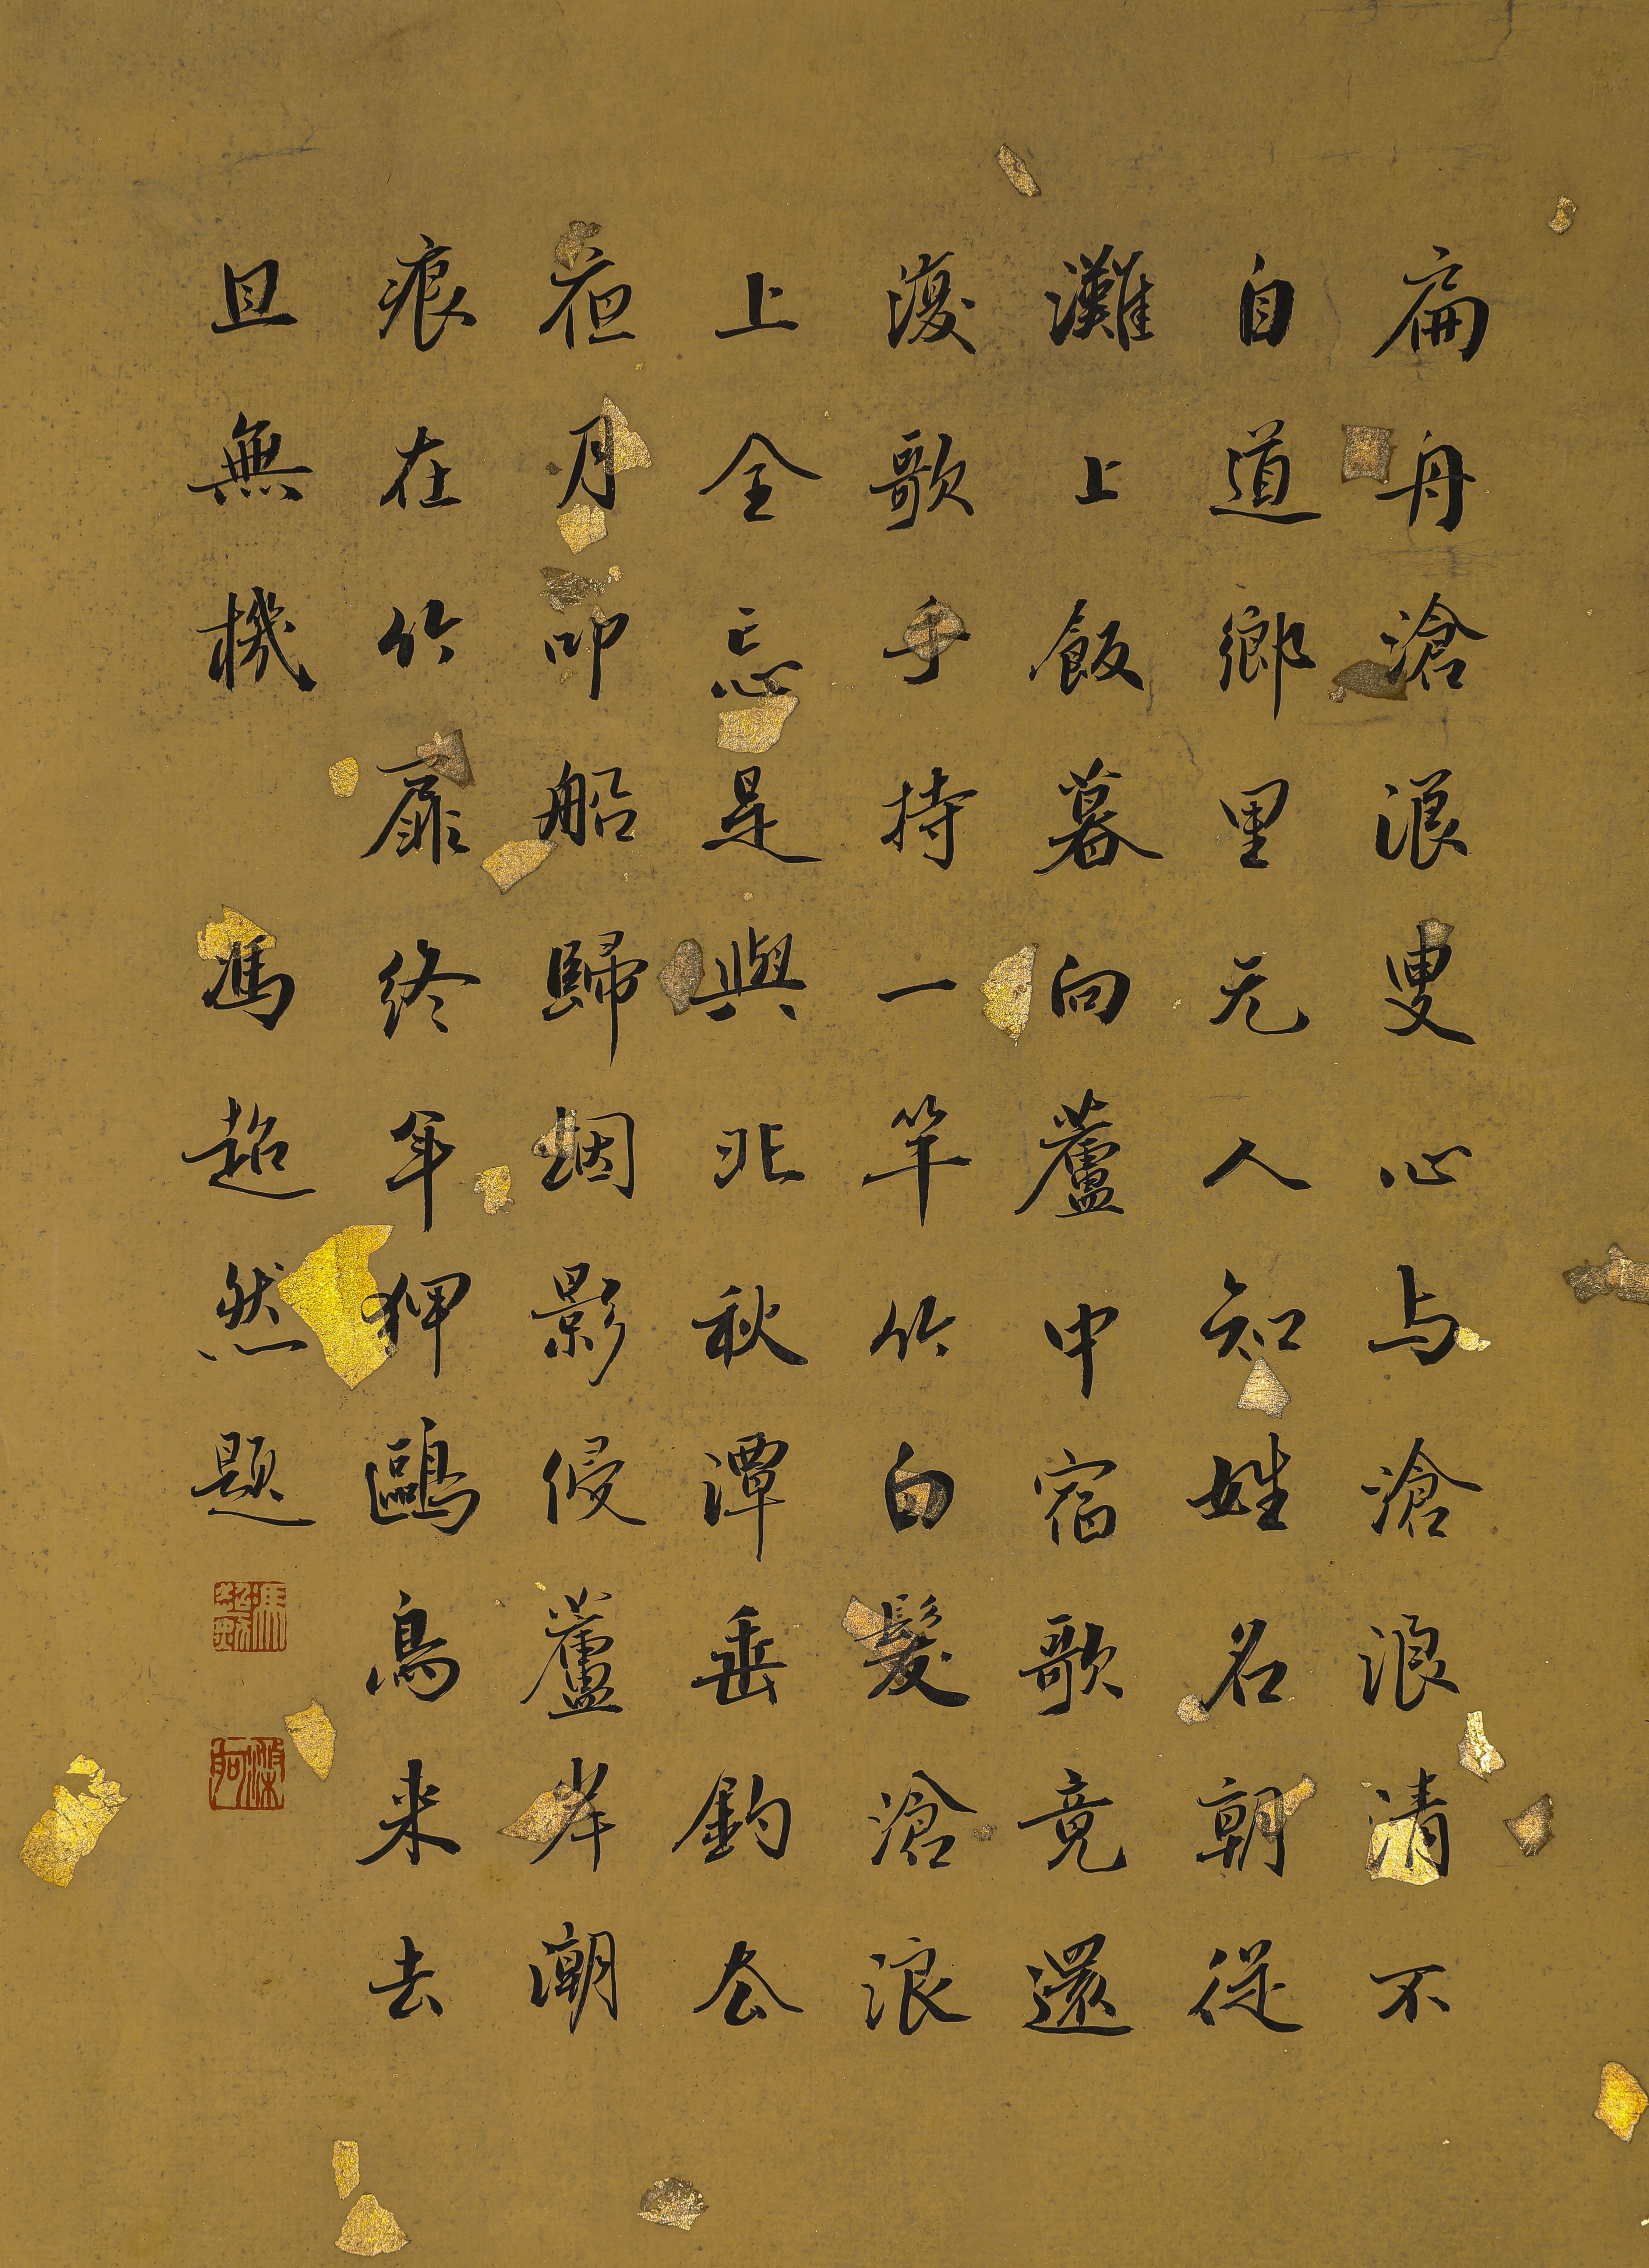 扁舟滄浪叟心与滄浪清不
自道鄉里无人知姓名朝從
灘上飯暮向蘆中宿歌竟還
復歌手持一竿竹白髮滄浪
上全忘是與非秋潭垂釣去
夜月叩船歸烟影侵蘆岸潮
痕在竹扉終年狎鷗鳥来去
且無機 馮超然題
馮超然
滌舸